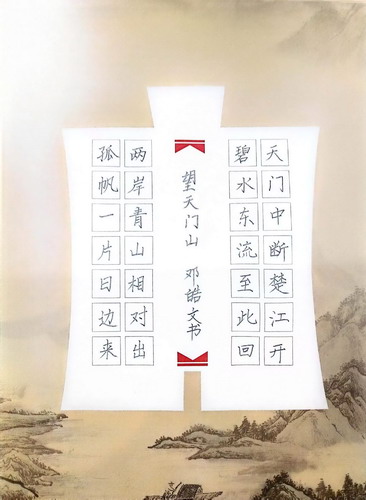 天门中断楚江开
碧水东流至此回
望天门山 邓皓文书
两岸青山相对出
孤帆一片日边来